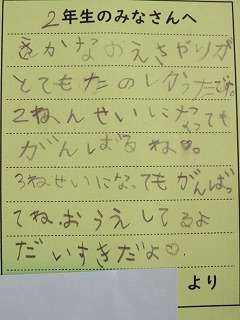 2年生のみなさんへ
さかなのえさやりが
とてもたのしかったです。
2ねんせいになっても
がんばるね♡。
3ねせいになってもがんばっ
てね。おうえしてるよ
だいすきだよ♡.
より